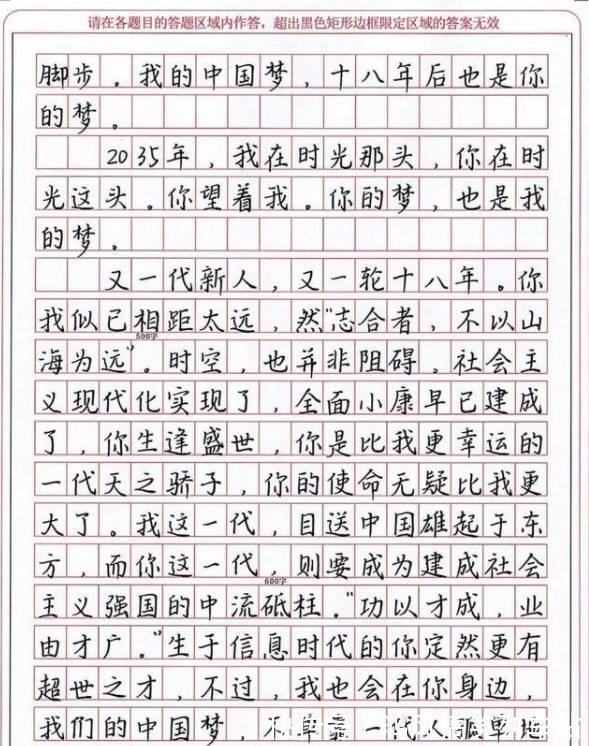 请在各题目的答题区域内作答，超出黑色矩形边框限定区域的答案无效
脚步。我的中国梦，十八年后也是你
的梦。
2035年，我在时光那头，你在时
光这头。你望着我。你的梦，也是我
的梦。
又一代新人，又一轮十八年。你
我似已相距太远，然“志合者，不以山
500字
海为远”。时空，也并非阻碍，社会主
义现代化实现了，全面小康早已建成
了，你生逢盛世，你是比我更幸运的
一代天之骄子，你的使命无疑比我更
大了。我这一代，目送中国雄起于东
方，而你这一代，则要成为建成社会
600字
主义强国的中流砥柱。“功以才成，业
由才广。”生于信息时代的你定然更有
超世之才，不过，我也会在你身边，
我们的中国梦，不单靠一代人